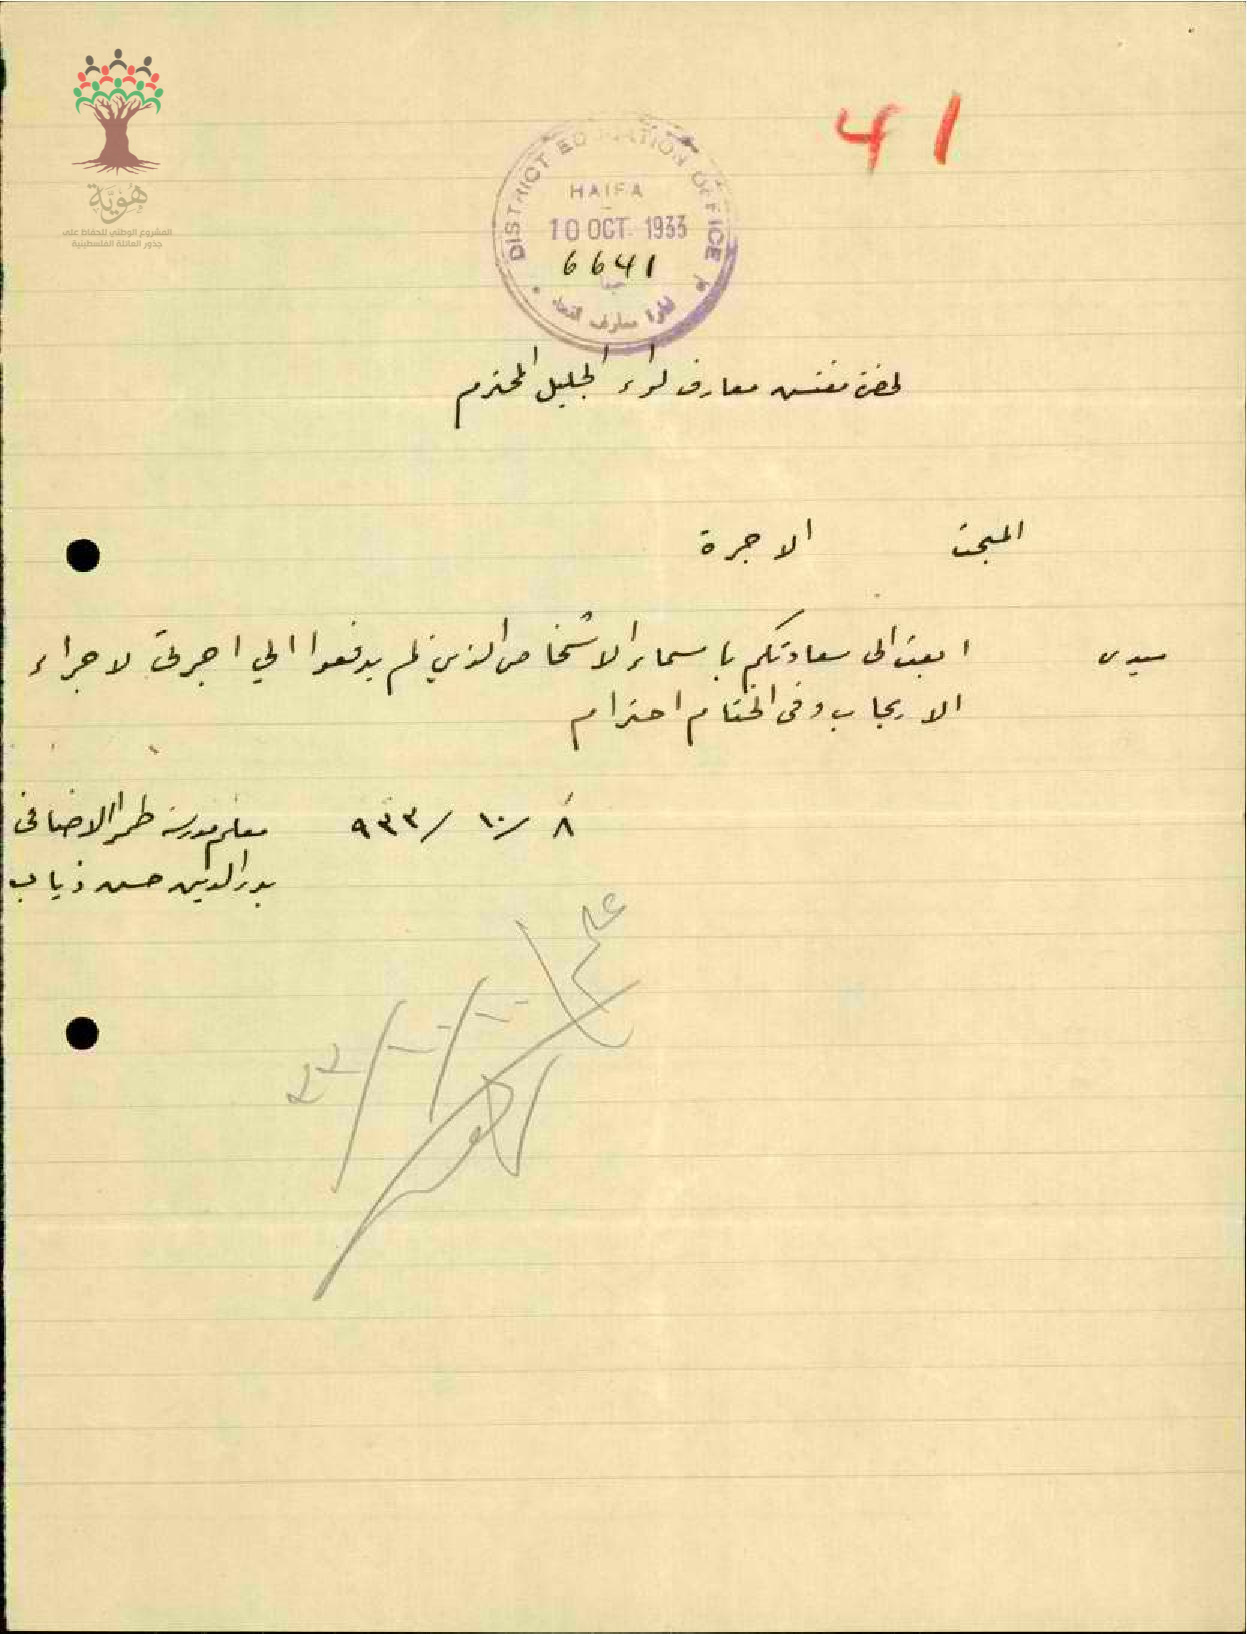 هوية
المشروع الوطني للحفاظ على
جذور العائلة الفلسطينية
41
DISTRICT EDUCATION OFFICE
HAIFA
10 OCT. 1933
6641
حيفا
ادارة معارف
لحضرة مفتش معارف لواء الجليل المحترم
المبحث الاجرة
سيدي ابعث الى سعادتكم باسماء الاشخاص الذين لم يدفعوا الي اجرتي لاجراء
الايجاب وفي الختام احترام
٨/ ١٠/ ٩٣٣ معلم مدرسة طمرا الاضافي
بدر الدين حسن ذياب